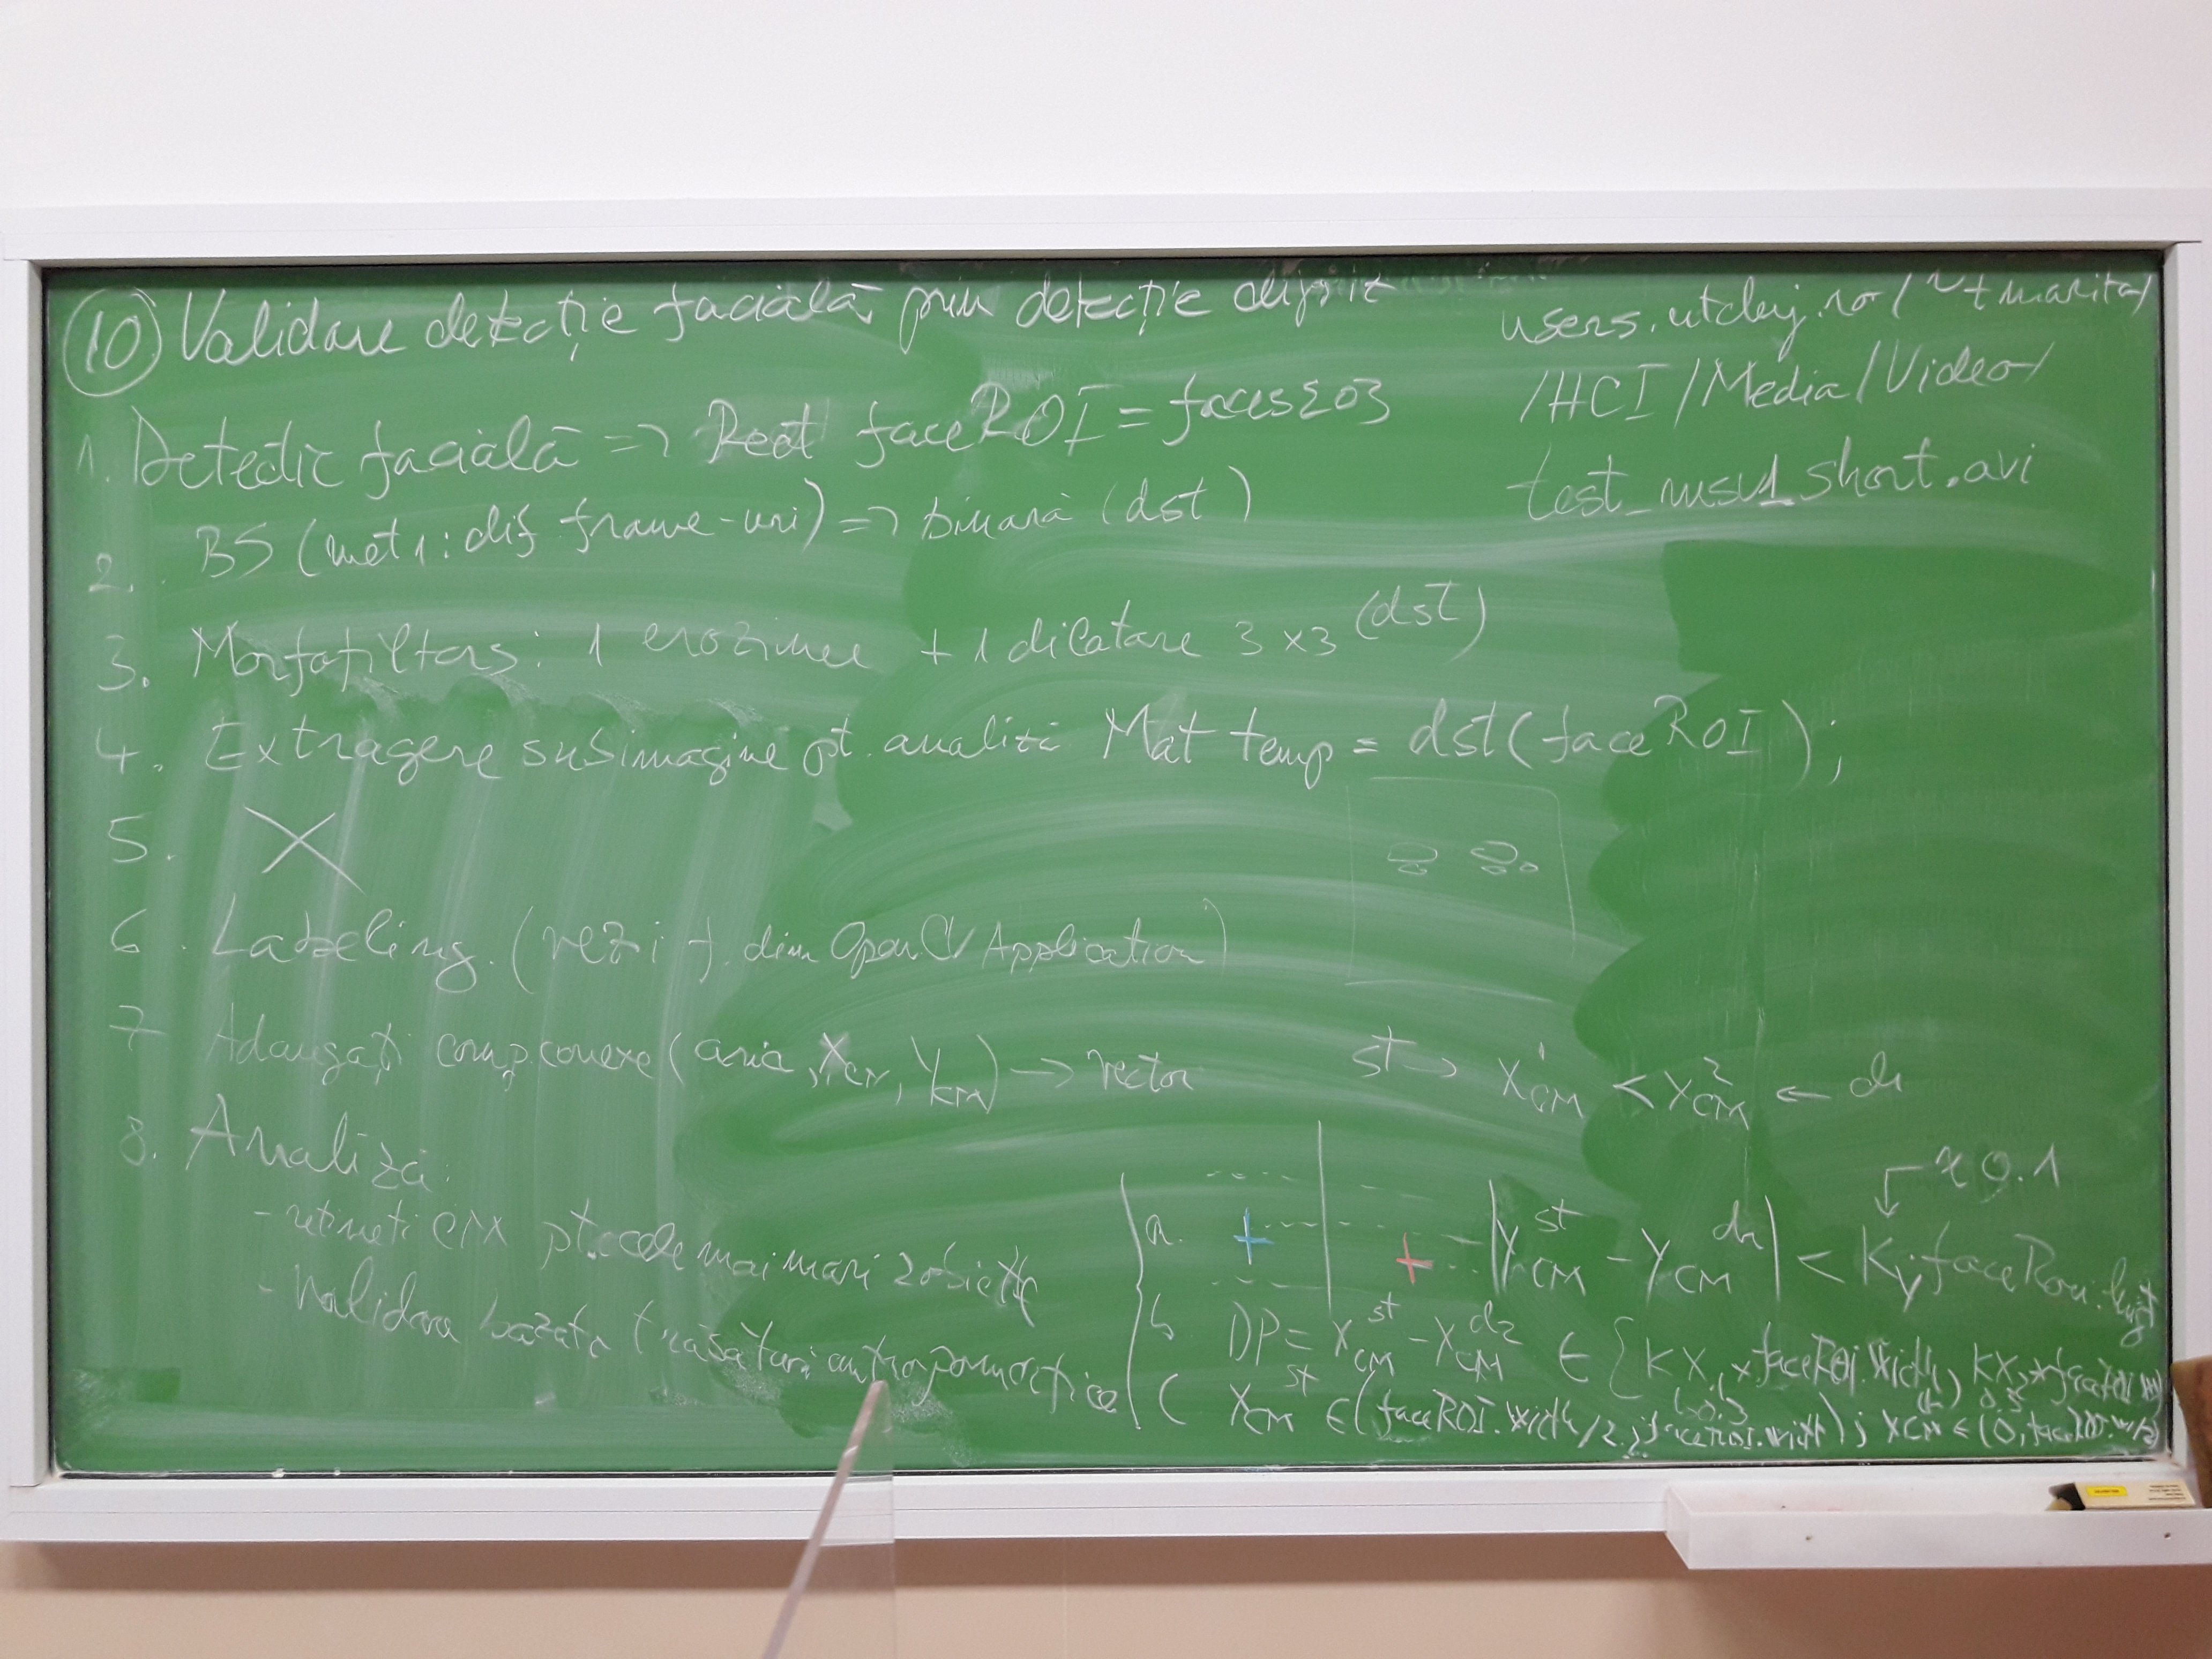 10 Validare detecție facială prin detecție clipit
users.utcluj.ro/~tmarita/
/HCI/Media/Video/
test_msv1_short.avi
1. Detecție facială => Rect faceROI = faces[0]
2. BS (met 1: dif frame-uri) => binară (dst)
3. Morfofiltors: 1 eroziune + 1 dilatare 3x3 (dst)
4. Extragere subimagine pt. analiză Mat temp = dst(faceROI);
5. X
6. Labeling. (vezi f. din OpenCVApplication)
7 Adaugați comp. conexe (aria, XCM, YCM) -> vector
st -> X¹CM < X²CM <- dr
8. Analiză:
- rețineți pt. cele mai mari 2 obiecte
- Validare bazată trăsături antropomorfice
≈ 0.1
a. |Y st CM - Y dr CM| < Ky faceRoi.height
b DP = X st CM - X dr CM ∈ {KX1 * faceROI.width, KX2 * faceROI.w}
0.3 0.5
c X st CM ∈ (faceROI.width/2; faceROI.width); X dr CM ∈ (0, faceROI.w/2)